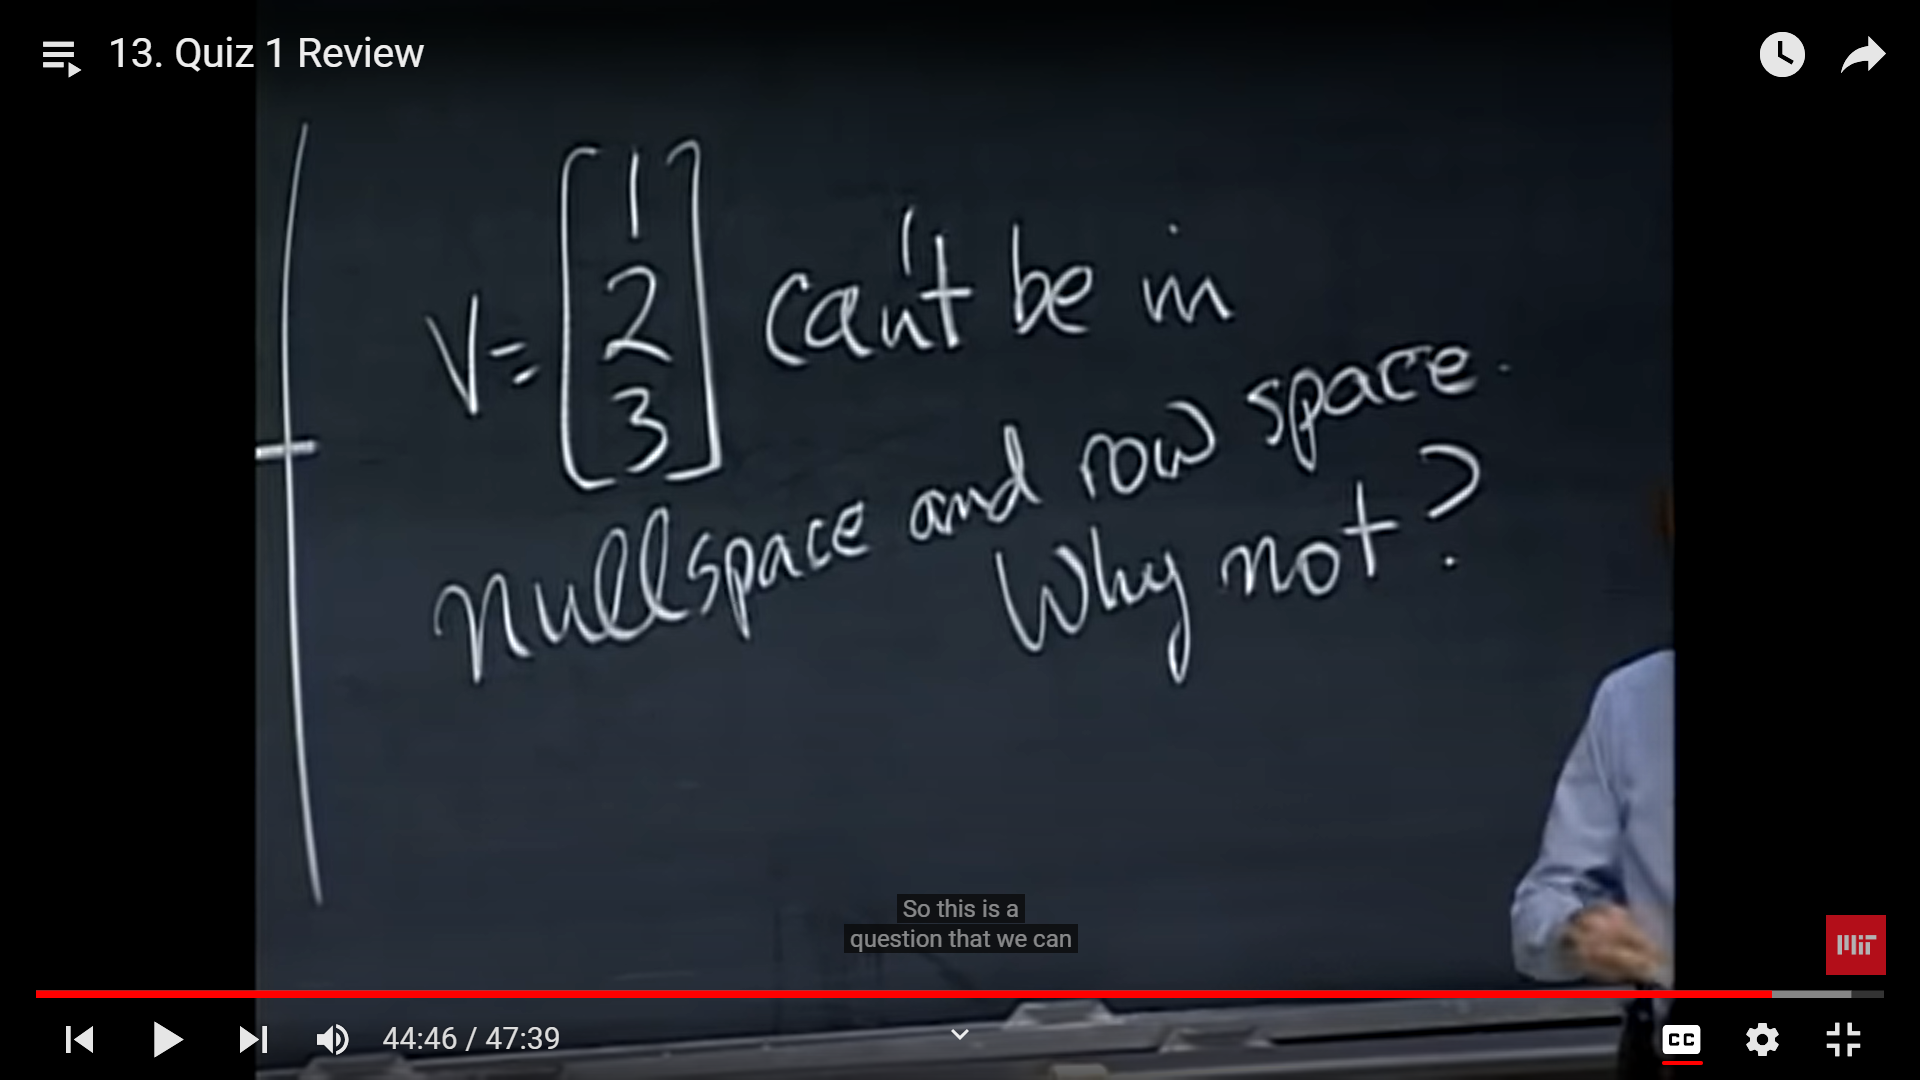 13. Quiz 1 Review
v = [1 2 3] can't be in
nullspace and row space.
Why not?
So this is a
question that we can
MIT
44:46 / 47:39
CC